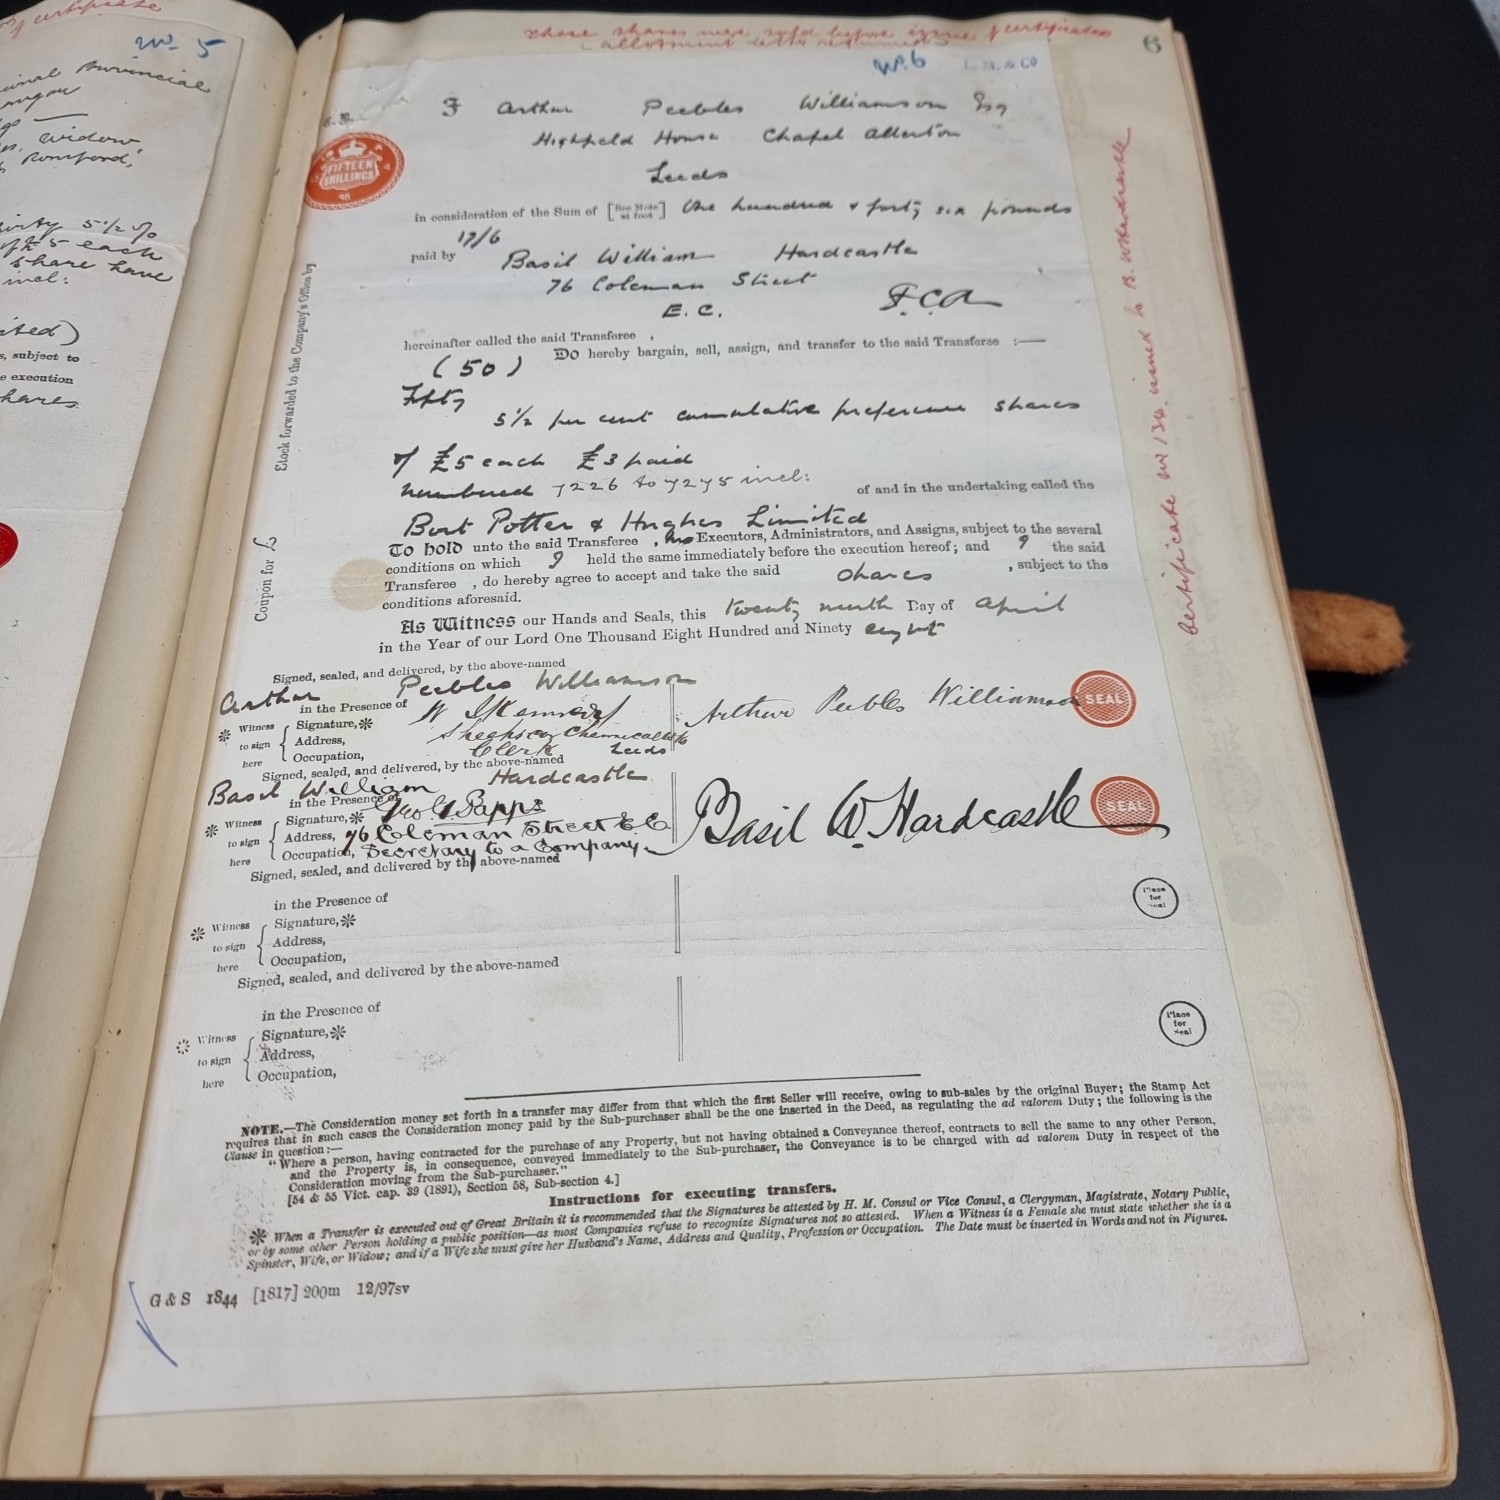 of certificate
No. 5
Provincial
widow,
Romford,
5 1/2 %
of £5 each
share have
incl:
, subject to
e execution
shares
These shares were sold before issue of certificates
(allotment letter returned)
6
No. 6
I Arthur Peebles Williamson Esq
Highfield House Chapel Allerton
Leeds
FIFTEEN
SHILLINGS
in consideration of the Sum of [See Note at foot] One hundred & forty six pounds
17/6
paid by Basil William Hardcastle
76 Coleman Street
E.C. F.C.A
hereinafter called the said Transferee ,
(50) Do hereby bargain, sell, assign, and transfer to the said Transferee :—
Fifty
5 1/2 per cent cumulative preference shares
of £5 each £3 paid
numbered 7226 to 7275 incl: of and in the undertaking called the
Bort Potter & Hughes Limited
To hold unto the said Transferee , his Executors, Administrators, and Assigns, subject to the several
conditions on which I held the same immediately before the execution hereof; and I the said
Transferee , do hereby agree to accept and take the said shares , subject to the
conditions aforesaid.
As Witness our Hands and Seals, this twenty ninth Day of April
in the Year of our Lord One Thousand Eight Hundred and Ninety eight
Signed, sealed, and delivered, by the above-named
Arthur Peebles Williamson
in the Presence of
Witness to sign here
Signature,
Address,
Occupation, Clerk Leeds
Arthur Peebles Williamson
SEAL
Signed, sealed, and delivered, by the above-named
Basil William Hardcastle
in the Presence of
Witness to sign here
Signature, Papps
Address, 76 Coleman Street E.C.
Occupation, Secretary to a Company.
Basil W. Hardcastle
SEAL
Signed, sealed, and delivered, by the above-named
in the Presence of
Witness to sign here
Signature,
Address,
Occupation,
Place for Seal
Signed, sealed, and delivered by the above-named
in the Presence of
Witness to sign here
Signature,
Address,
Occupation,
Place for Seal
NOTE.—The Consideration money set forth in a transfer may differ from that which the first Seller will receive, owing to sub-sales by the original Buyer; the Stamp Act
requires that in such cases the Consideration money paid by the Sub-purchaser shall be the one inserted in the Deed, as regulating the ad valorem Duty; the following is the
Clause in question:—
"Where a person, having contracted for the purchase of any Property, but not having obtained a Conveyance thereof, contracts to sell the same to any other Person,
and the Property is, in consequence, conveyed immediately to the Sub-purchaser, the Conveyance is to be charged with ad valorem Duty in respect of the
Consideration moving from the Sub-purchaser."
[54 & 55 Vict. cap. 39 (1891), Section 58, Sub-section 4.]
Instructions for executing transfers.
When a Transfer is executed out of Great Britain it is recommended that the Signatures be attested by H. M. Consul or Vice Consul, a Clergyman, Magistrate, Notary Public,
or by some other Person holding a public position—as most Companies refuse to recognize Signatures not so attested. When a Witness is a Female she must state whether she is a
Spinster, Wife, or Widow; and if a Wife she must give her Husband's Name, Address and Quality, Profession or Occupation. The Date must be inserted in Words and not in Figures.
G & S 1844 [1817] 200m 12/97sv
Coupon for £
Stock forwarded to the Company's Office by
Certificate No. 134. issued to B. W. Hardcastle